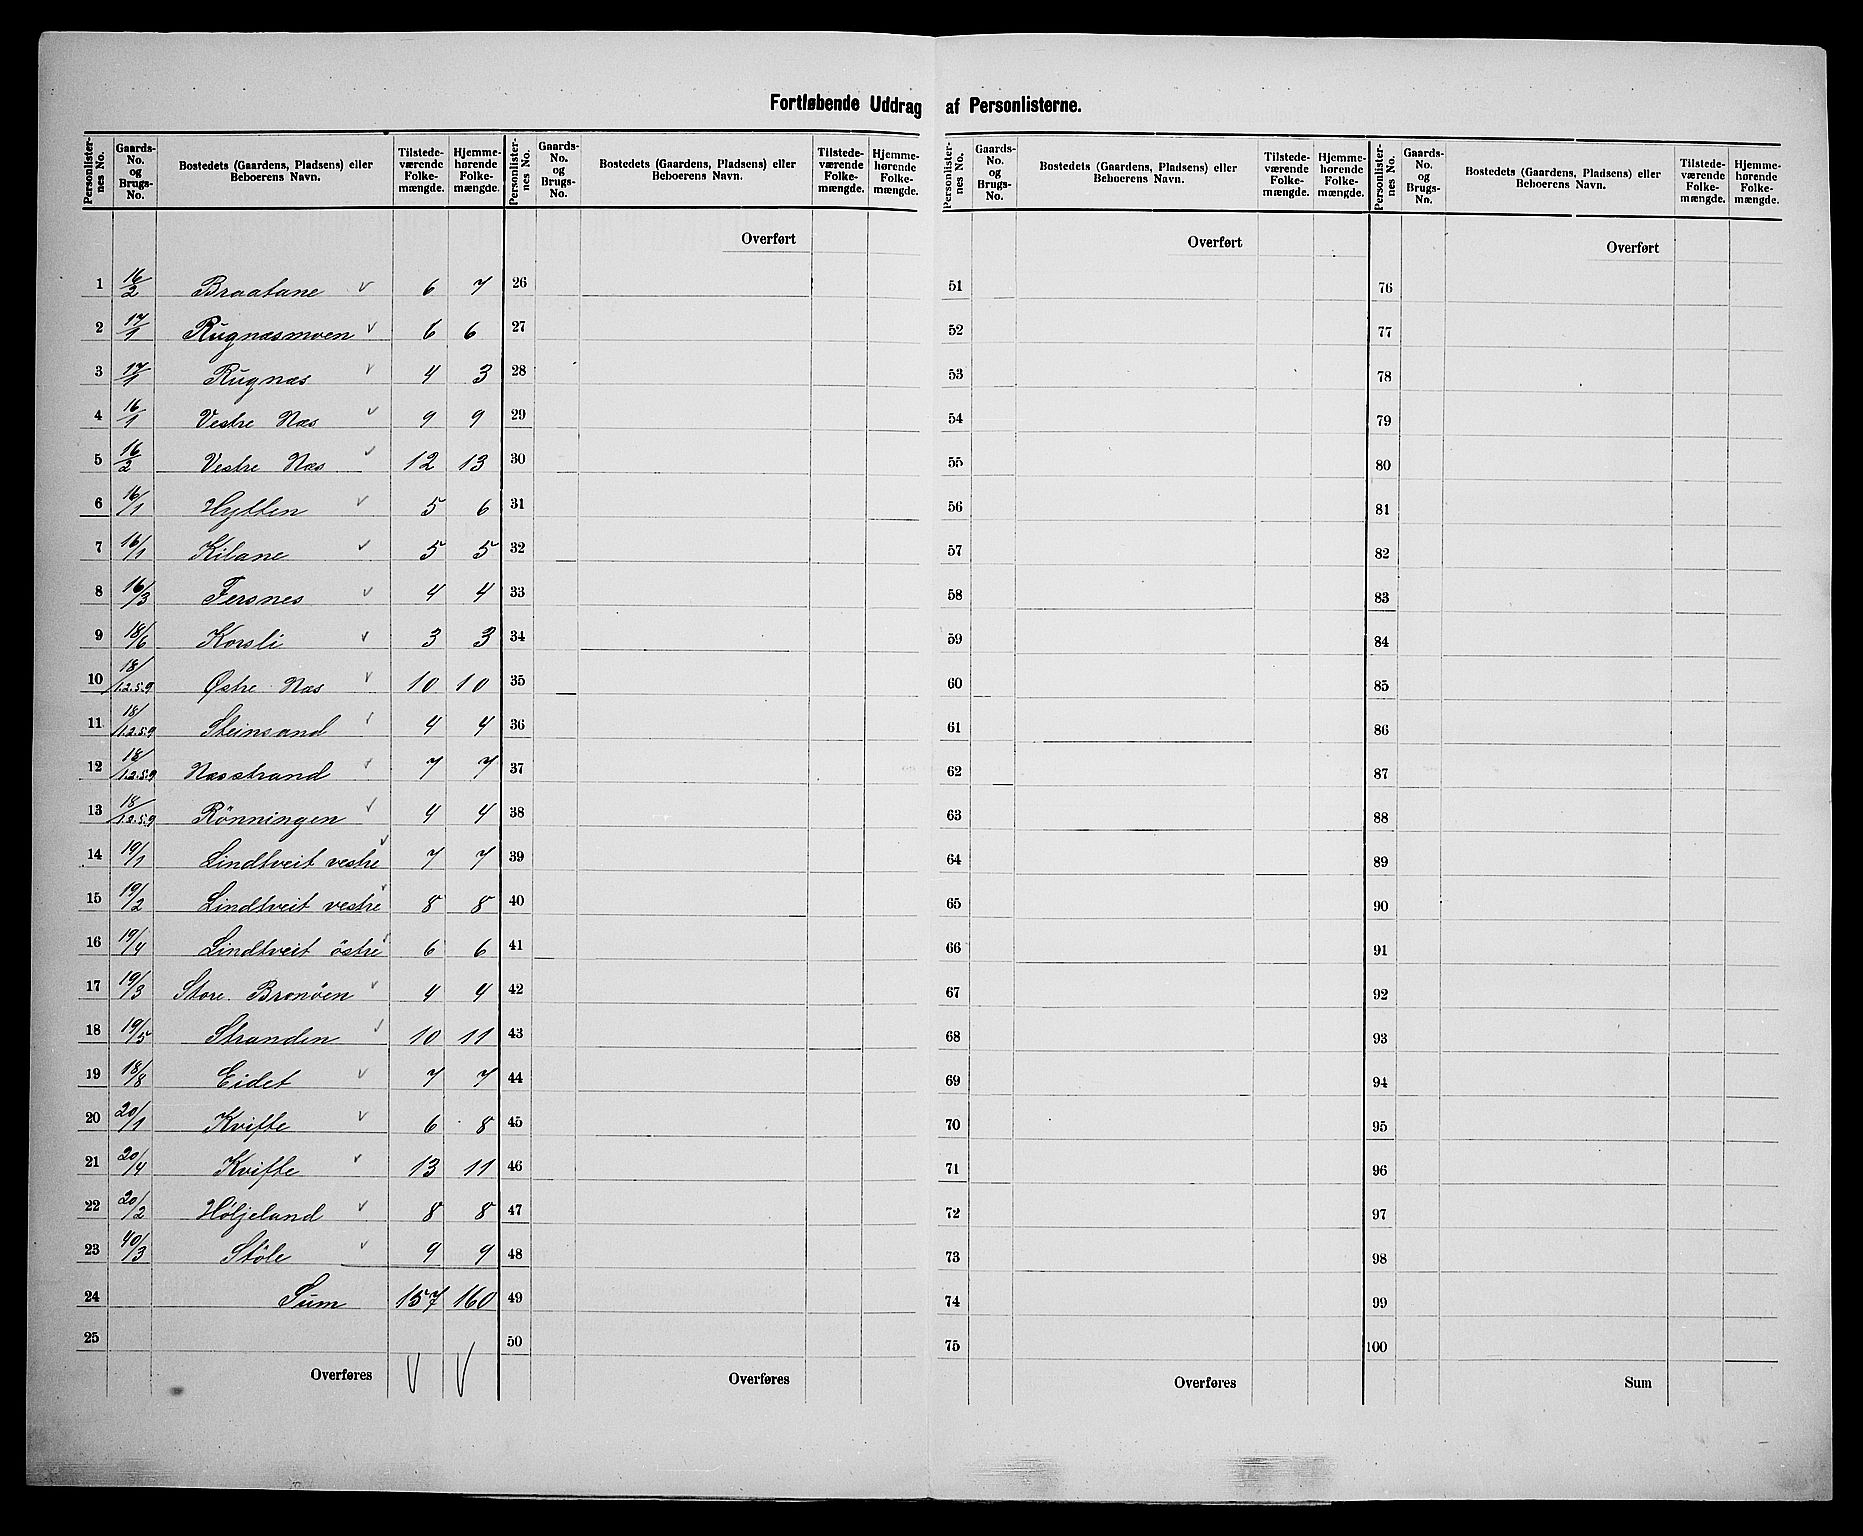 Fortløbende Uddrag af Personlisterne.
Personlister-nes No. Gaards-No. og Brugs-No. Bostedets (Gaardens, Pladsens) eller Beboerens Navn. Tilstede-værende Folke-mængde. Hjemme-hørende Folke-mængde.
1 16/2 Braatane v 6 7
2 17/1 Rugnæsmoen v 6 6
3 17/1 Rugnæs v 4 3
4 16/1 Vestre Næs v 9 9
5 16/2 Vestre Næs v 12 13
6 16/1 Hytten v 5 6
7 16/1 Kilane v 5 5
8 16/3 Fersnes v 4 4
9 18/6 Korsli v 3 3
10 18/1.2.5.9 Østre Næs v 10 10
11 18/1.2.5.9 Steinsand v 4 4
12 18/1.2.5.9 Næsstrand v 7 7
13 18/1.2.5.9 Rönningen v 4 4
14 19/1 Lindtveit vestre v 7 7
15 19/2 Lindtveit vestre v 8 8
16 19/4 Lindtveit östre v 6 6
17 19/3 Store Bronöen v 4 4
18 19/5 Stranden v 10 11
19 18/8 Eidet v 7 7
20 20/1 Kvifte v 6 8
21 20/4 Kvifte v 13 11
22 20/2 Høljeland v 8 8
23 40/3 Stöle v 9 9
24 Sum 157 160
25
Overføres V V
Personlister-nes No. Gaards-No. og Brugs-No. Bostedets (Gaardens, Pladsens) eller Beboerens Navn. Tilstede-værende Folke-mængde. Hjemme-hørende Folke-mængde.
Overført
26
27
28
29
30
31
32
33
34
35
36
37
38
39
40
41
42
43
44
45
46
47
48
49
50
Overføres
Personlister-nes No. Gaards-No. og Brugs-No. Bostedets (Gaardens, Pladsens) eller Beboerens Navn. Tilstede-værende Folke-mængde. Hjemme-hørende Folke-mængde.
Overført
51
52
53
54
55
56
57
58
59
60
61
62
63
64
65
66
67
68
69
70
71
72
73
74
75
Overføres
Personlister-nes No. Gaards-No. og Brugs-No. Bostedets (Gaardens, Pladsens) eller Beboerens Navn. Tilstede-værende Folke-mængde. Hjemme-hørende Folke-mængde.
Overført
76
77
78
79
80
81
82
83
84
85
86
87
88
89
90
91
92
93
94
95
96
97
98
99
100
Sum